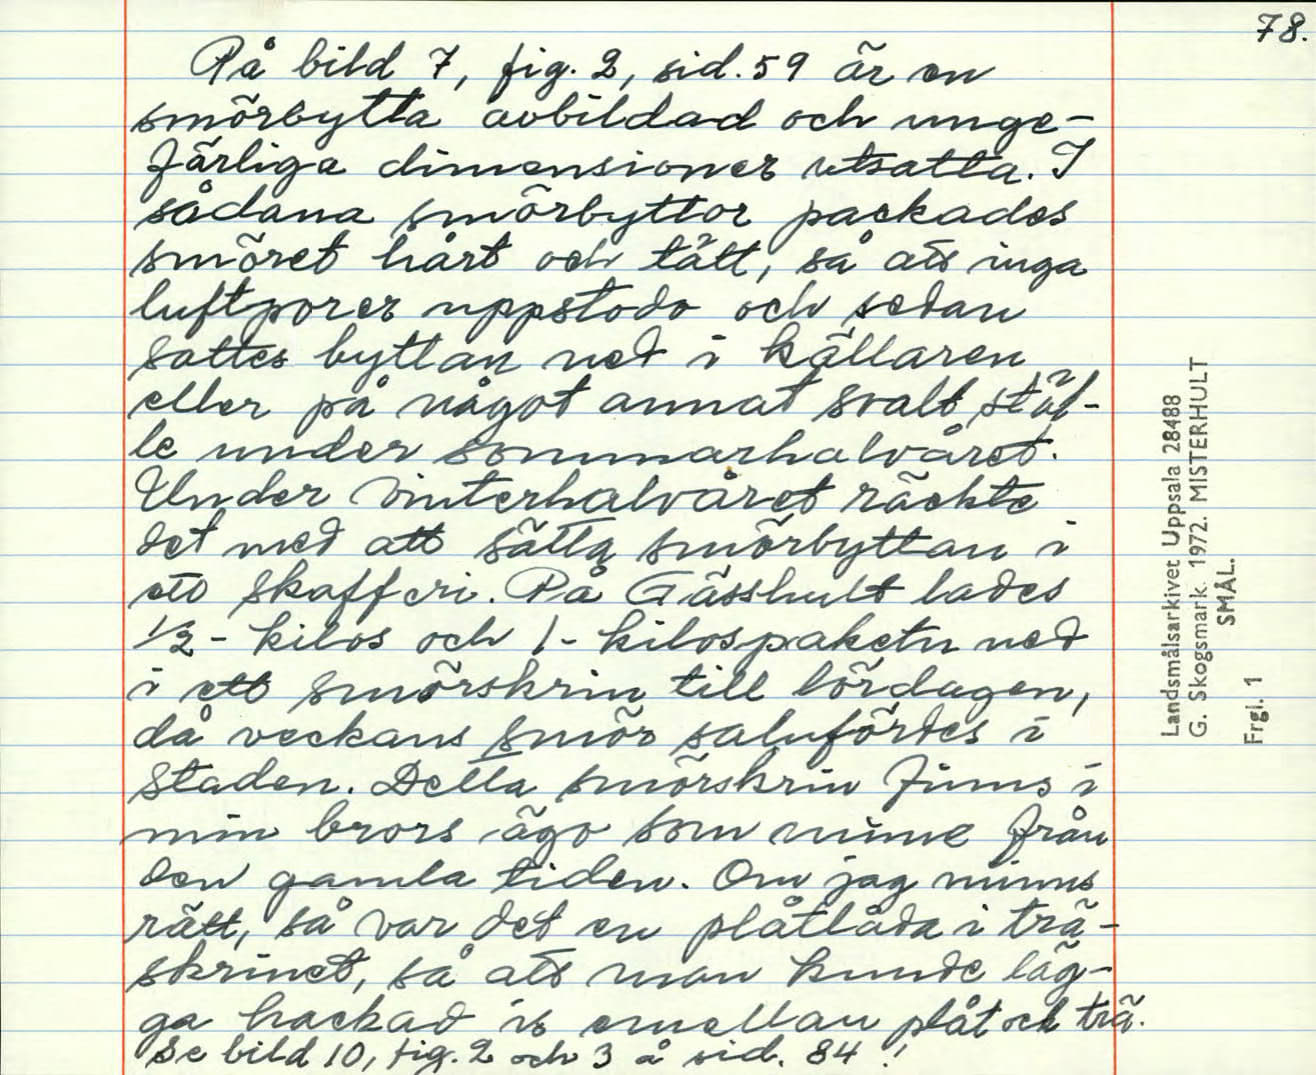 78.
På bild 7, fig. 2, sid. 59 är en
smörbytta avbildad och unge-
färliga dimensioner utsatta. I
sådana smörbyttor packades
smöret hårt och tätt, så att inga
luftporer uppstodo och sedan
sattes byttan ned i källaren
eller på något annat svalt stäl-
le under sommarhalvåret.
Under vinterhalvåret räckte
det med att sätta smörbyttan i
ett skafferi. På Gässhult lades
1/2-kilos och 1-kilospaketen ned
i ett smörskrin till lördagen,
då veckans smör salufördes i
staden. Detta smörskrin finns i
min brors ägo som minne från
den gamla tiden. Om jag minns
rätt, så var det en plåtlåda i trä-
skrinet, så att man kunde läg-
ga hackad is emellan plåt och trä.
Se bild 10, fig. 2 och 3 å sid. 84!
Landsmålsarkivet Uppsala 28488
G. Skogsmark. 1972. MISTERHULT
SMÅL.
Frgl. 1